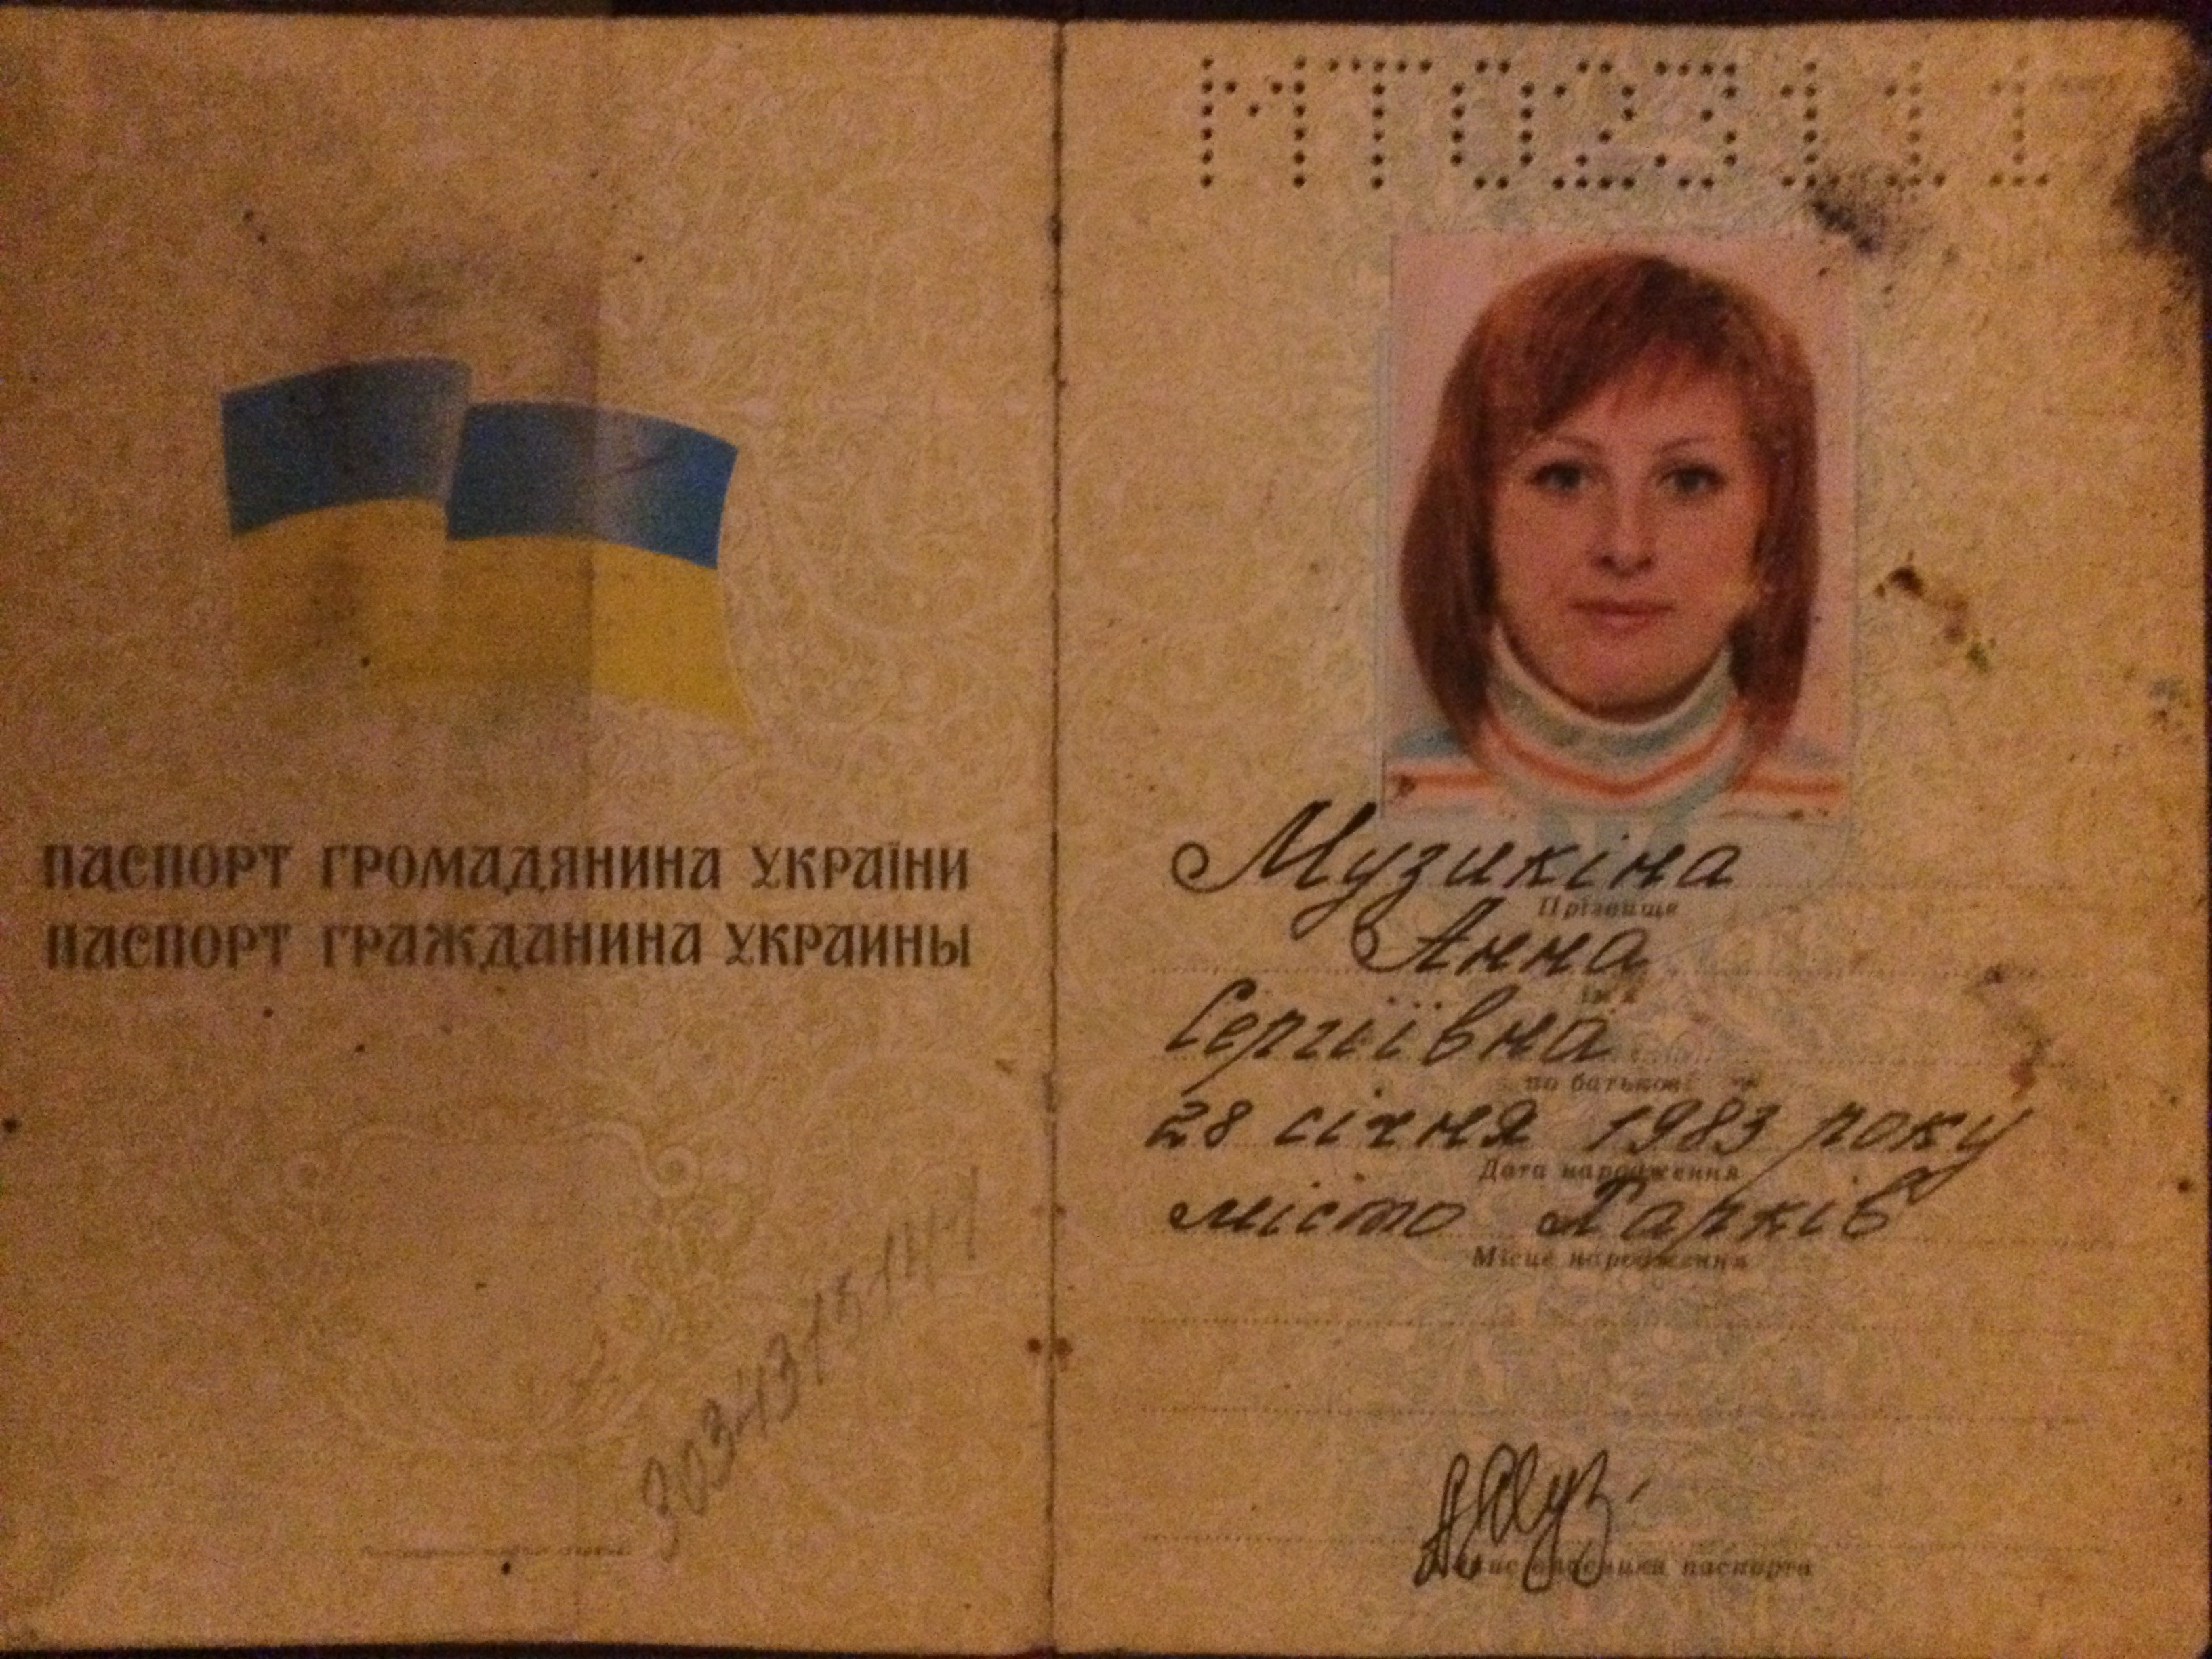 ПАСПОРТ ГРОМАДЯНИНА УКРАЇНИ
ПАСПОРТ ГРАЖДАНИНА УКРАИНЫ
МТ023111
Музикіна
Прізвище
Анна
Ім'я
Сергіївна
по батькові
28 січня 1983 року
Дата народження
місто Харків
Місце народження
Підпис власника паспорта